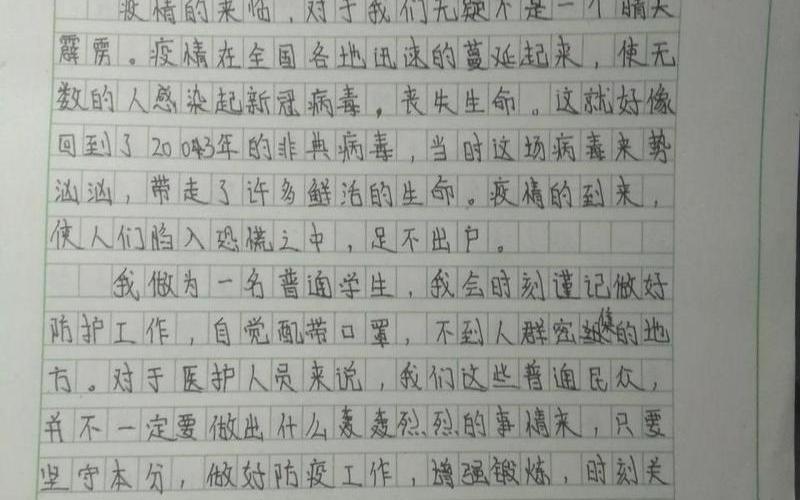 疫情的来临，对于我们无疑不是一个晴天
霹雳。疫情在全国各地迅速的蔓延起来，使无
数的人感染起新冠病毒，丧失生命。这就好像
回到了2003年的非典病毒，当时这场病毒来势
汹汹，带走了许多鲜活的生命。疫情的到来，
使人们陷入恐慌之中，足不出户。
我做为一名普通学生，我会时刻谨记做好
防护工作，自觉配带口罩，不到人群密集的地
方。对于医护人员来说，我们这些普通民众，
并不一定要做出什么轰轰烈烈的事情来，只要
坚守本分，做好防疫工作，增强锻炼，时刻关